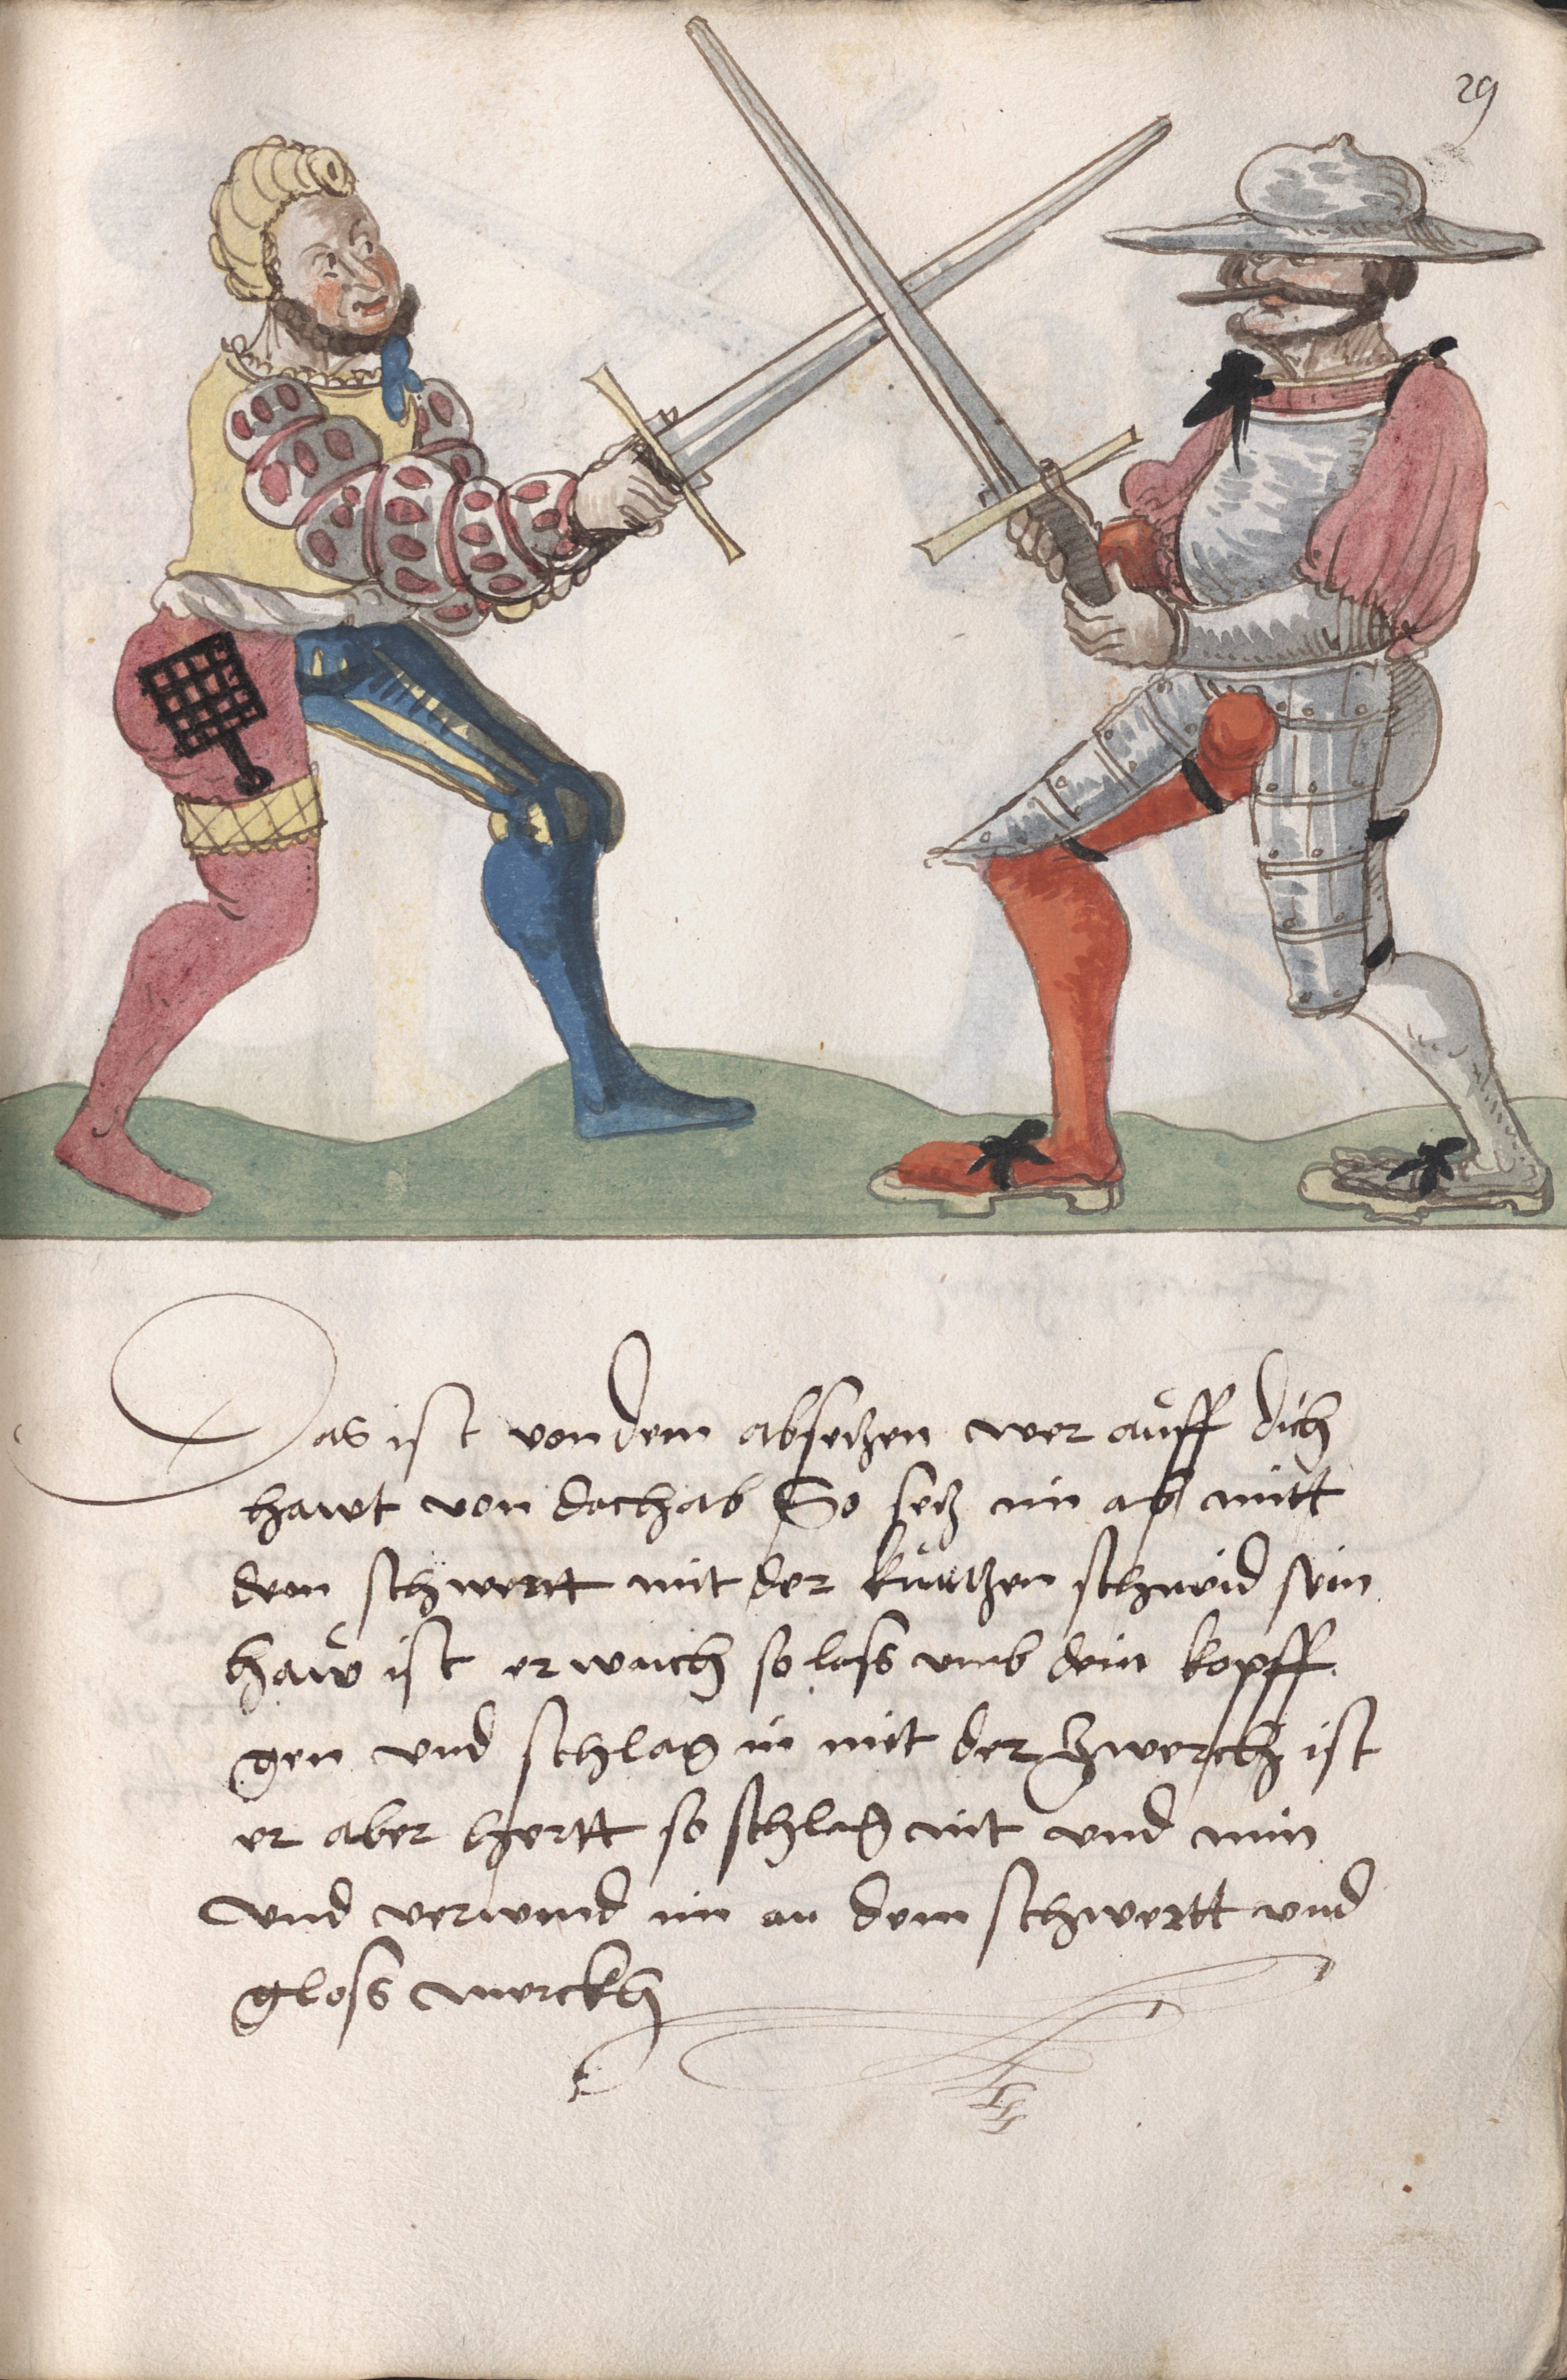 29
Das ist von dem absetzen wer aůff dich
hawt von dachab So setz im ab mitt
dem schwertt mit der kůrtzen schneid sein
haẘ ist er waich so lass vmb dein kopff
gen vnd schlag in mit der zwerch ist
er aber hertt so schlag nit vnd nim
vnd verwind im an dem schwertt vnd
gloss merckh